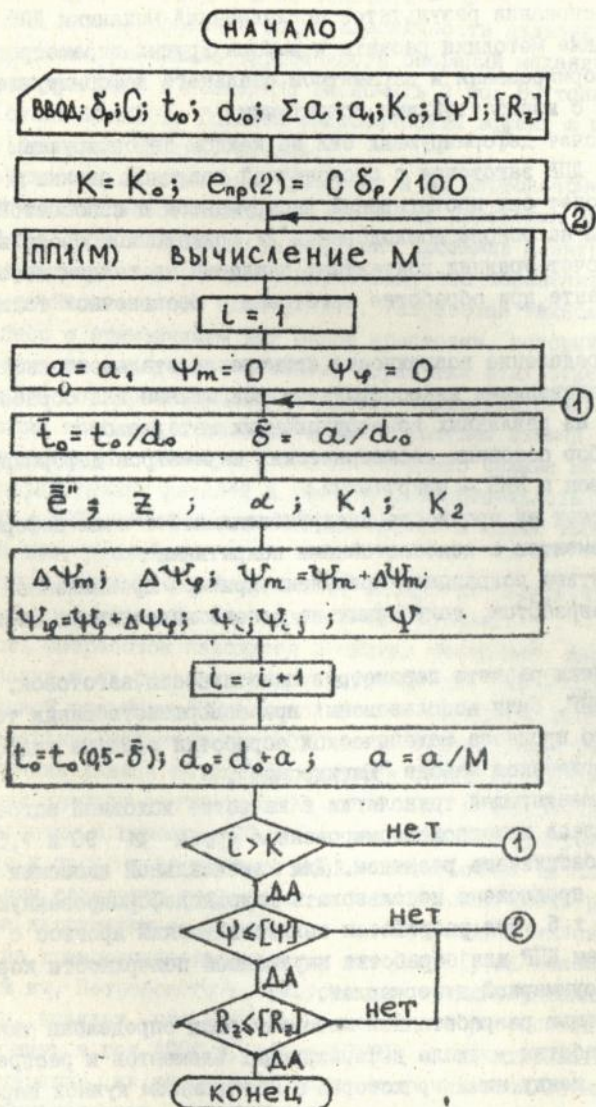 НАЧАЛО
ВВОД: δр; C; t₀; d₀; Σa; a₁; K₀; [Ψ]; [Rz]
K = K₀; eпр(2) = C δр/100
2
ПП1(М) ВЫЧИСЛЕНИЕ М
i = 1
a = a₁ Ψm = 0 Ψφ = 0
1
t̄₀ = t₀/d₀ δ̄ = a/d₀
Z ; α ; K₁ ; K₂
ΔΨm; ΔΨφ; Ψm = Ψm + ΔΨm;
Ψφ = Ψφ + ΔΨφ; Ψi; Ψ
i = i + 1
t₀ = t₀(0,5 - δ̄); d₀ = d₀ + a; a = a/M
i > K нет 1
ДА
Ψ ≤ [Ψ] нет 2
ДА
Rz ≤ [Rz] нет
ДА
КОНЕЦ